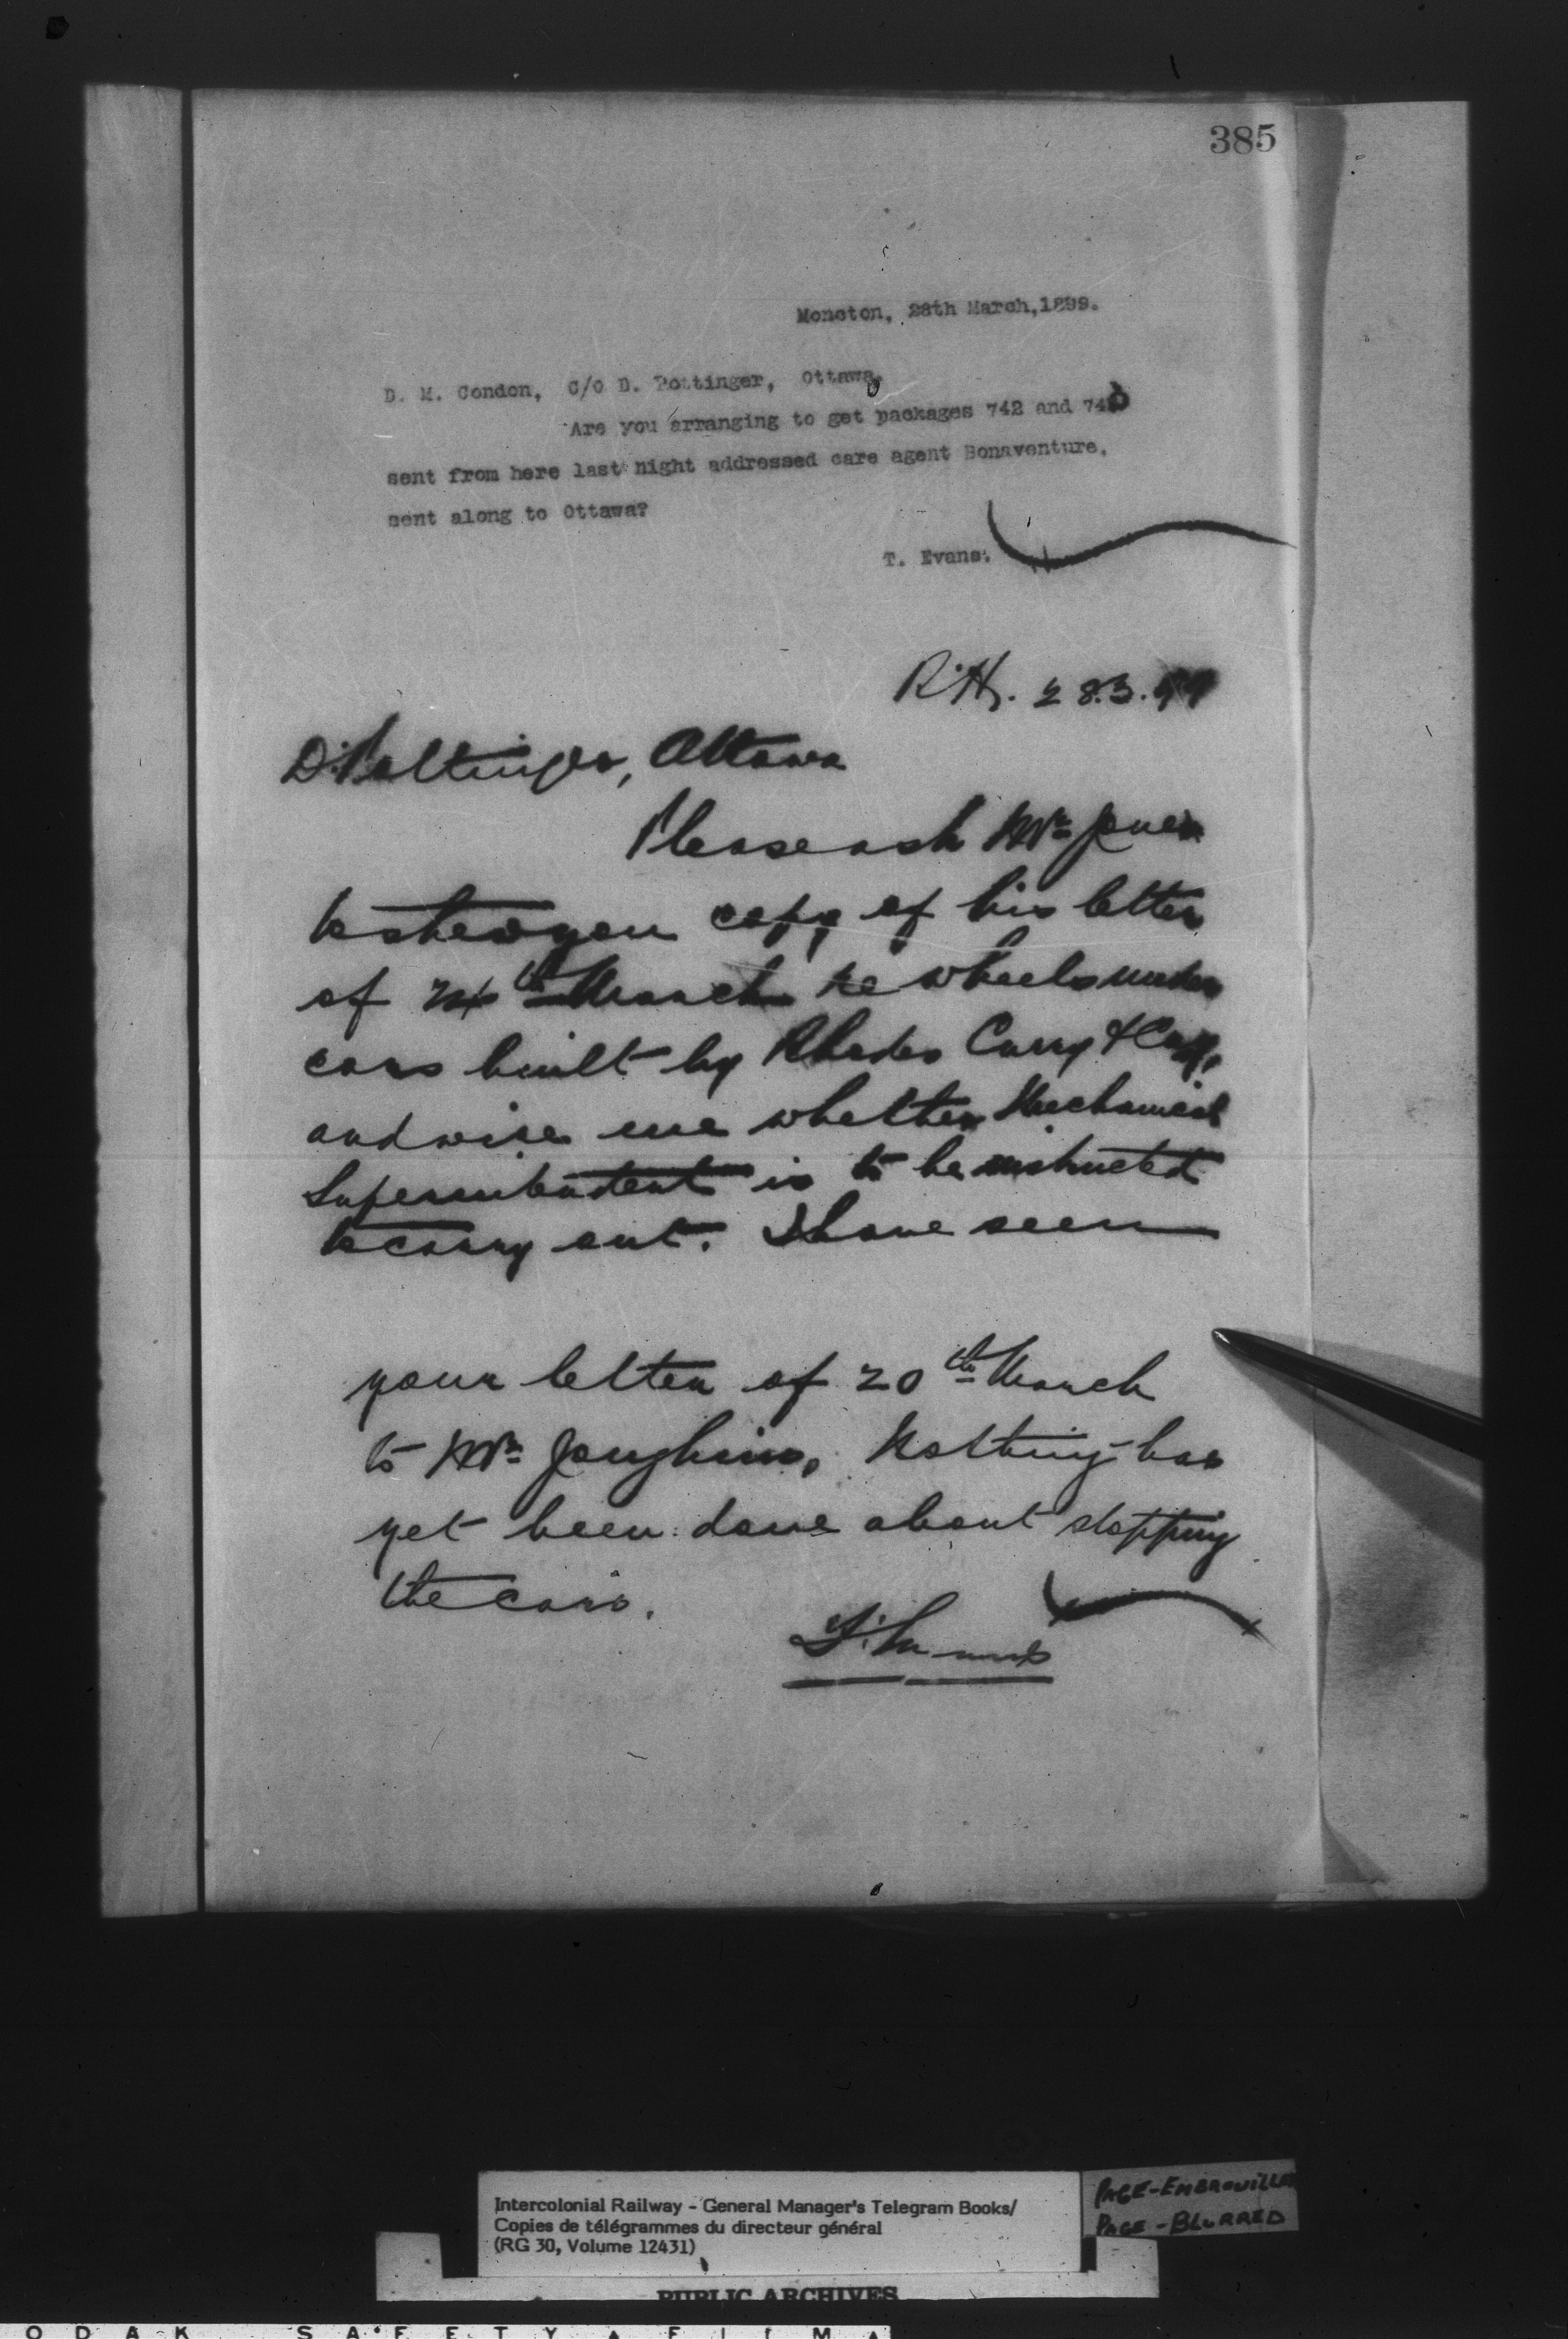 385
Moncton, 28th March, 1899.
D. M. Condon, c/o D. Pottinger, Ottawa,
Are you arranging to get packages 742 and
sent from here last night addressed care agent Bonaventure,
sent along to Ottawa?
T. Evans.
28.3.99
D. Pottinger, Ottawa
Please ask Mr Jones
to shew you copy of his letter
of th March re wheels under
cars built by Rhodes Curry & Coy,
and wire me whether Mechanical
Superintendent is to be instructed
to carry out. I have seen
your letter of 20th March
to Mr Joughins, Nothing has
yet been done about stopping
the cars.
Intercolonial Railway - General Manager's Telegram Books/
Copies de télégrammes du directeur général
(RG 30, Volume 12431)
PAGE-EMBROUILLÉE
PAGE-BLURRED
PUBLIC ARCHIVES
ODAK SAFETY FILM